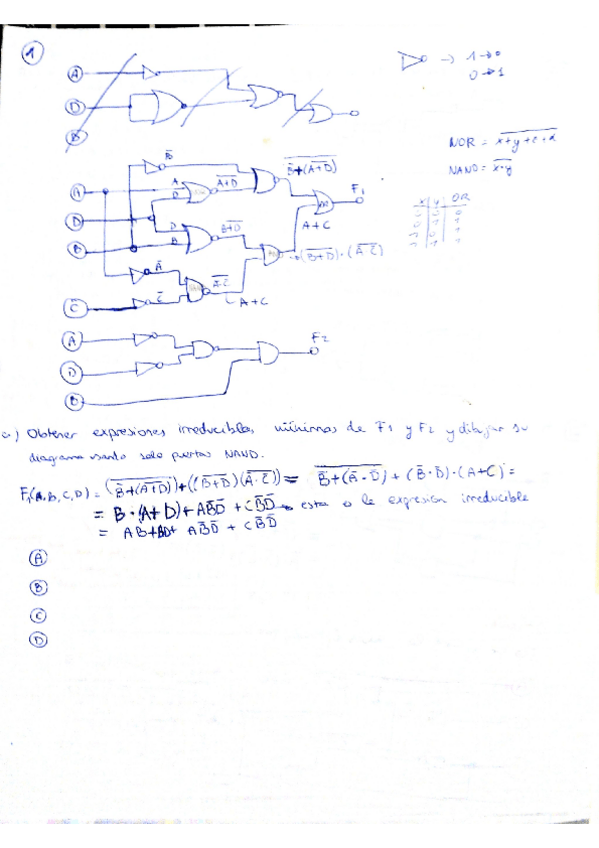 1
A
D
B
→ 1→0
0→1
NOR = \overline{x+y+z+d}
NAND = \overline{x·y}
x y OR
B̄
\overline{B̄+(\overline{A+D})}
A
D
\overline{A+D}
F1
A
D
B
D
B
\overline{B+D}
A+C
(\overline{B+D})·(\overline{Ā·C̄})
Ā
C̄
\overline{Ā·C̄}
A+C
C̄
A
D
B
F2
a) Obtener expresiones irreducibles mínimas de F1 y F2 y dibujar su
diagrama usando solo puertas NAND.
F1(A,B,C,D) = (\overline{B̄+(\overline{A+D})})+((\overline{B+D})(\overline{Ā·C̄})) = \overline{B̄+(Ā·D̄)} + (B̄·D̄)·(A+C) =
= B·(A+D)+AB̄D̄ + CB̄D̄ → esta es la expresión irreducible
= AB+BD+ AB̄D̄ + CB̄D̄
A
B
C
D